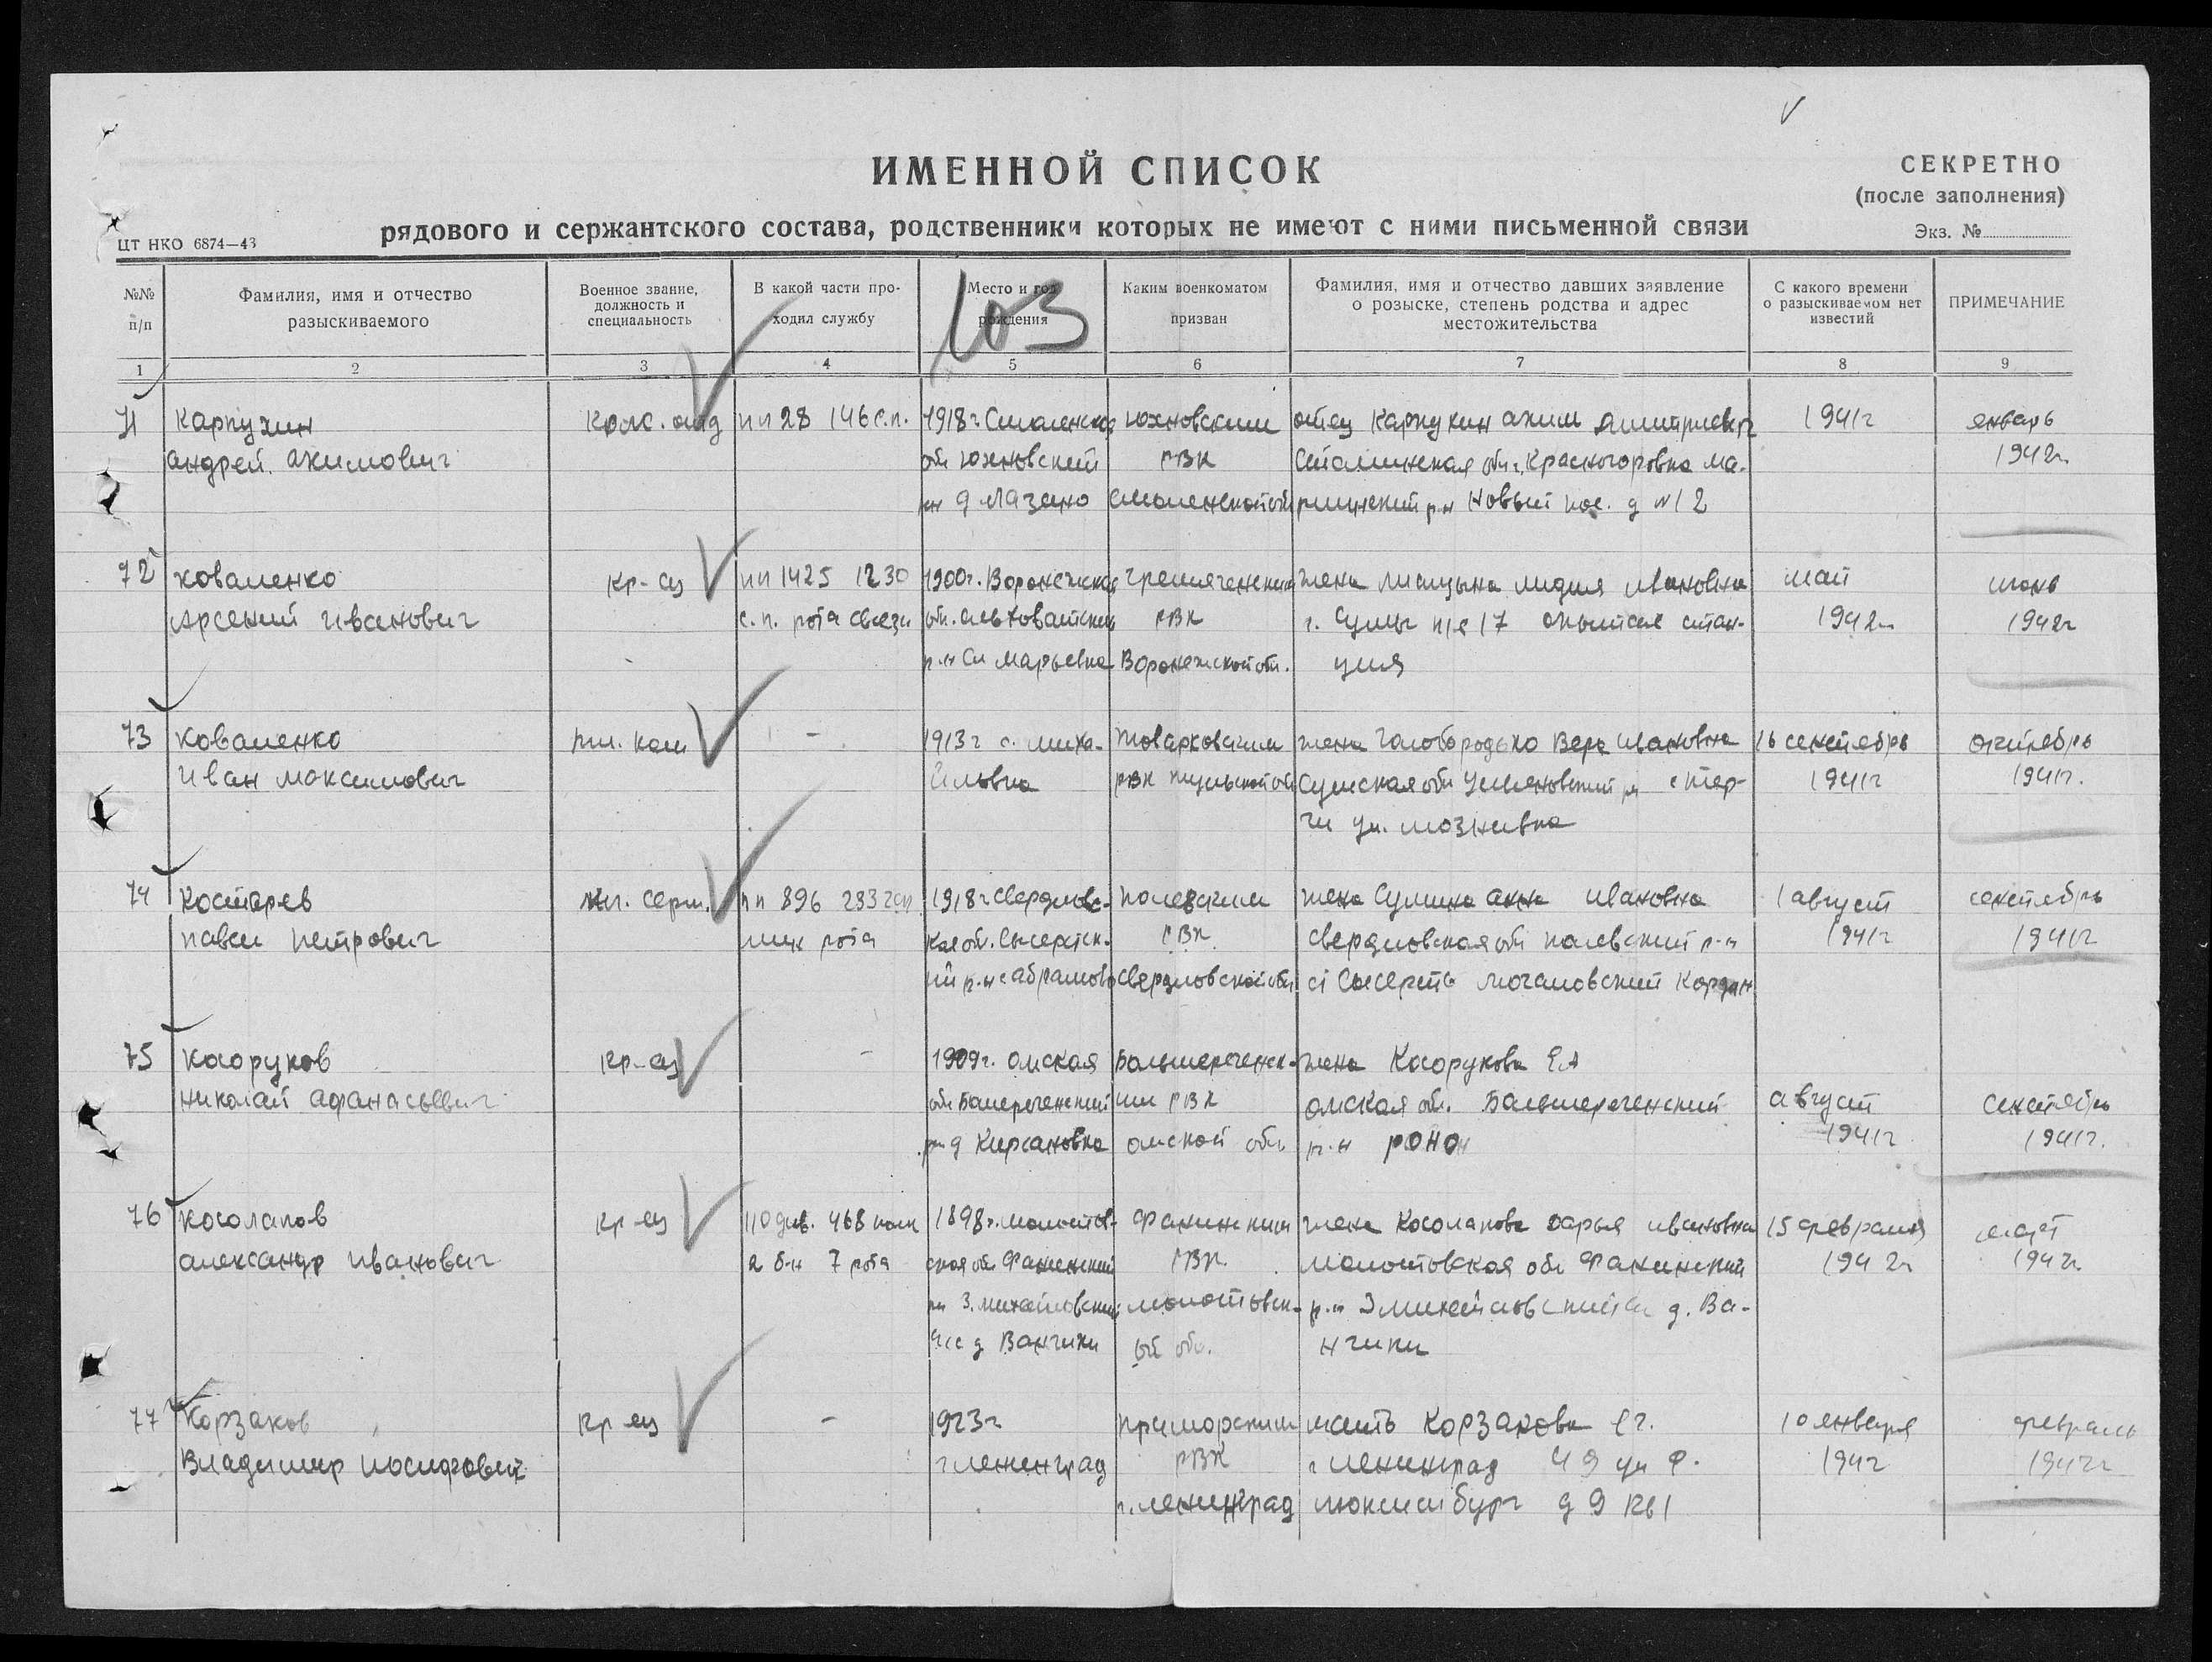 ИМЕННОЙ СПИСОК
СЕКРЕТНО
(после заполнения)
рядового и сержантского состава, родственники которых не имеют с ними письменной связи
ЦТ НКО 6874—43
Экз. №
№№ п/п
Фамилия, имя и отчество разыскиваемого
Военное звание, должность и специальность
В какой части проходил службу
Место и год рождения
103
Каким военкоматом призван
Фамилия, имя и отчество давших заявление о розыске, степень родства и адрес местожительства
С какого времени о разыскиваемом нет известий
ПРИМЕЧАНИЕ
1 2 3 4 5 6 7 8 9
71 Карпухин ком. отд пп 28 146 с.п. 1918 г Смоленска Юхновским отец Карпухин Аким Дмитриевич 1941г январь
Андрей Акимович обл Юхновский РВК Сталинская обл. Красногоровка Ма- 1942г.
рн д Мазено Смоленской обл ринский р-н Новый пос. д №12
72 Коваленко кр-ец пп 1425 1230 1900г. Воронежская Гремяченским жена Лидия Ивановна май июнь
Арсений Иванович с.п. рота связи обл. Ольховатский РВК г. Сумы п/я 17 опытная стан- 1942г 1942г
р-н Сл Марьевка Воронежской обл. ция
73 Коваленко ком — 1913г с. Миха- Товарковским жена Голобородько Вера Ивановна 16 сентября октябрь
Иван Максимович йловка РВК Тульской обл Сумская обл Ульяновский рн с Тер- 1941г 1941г.
ул.
74 Костарев мл. серж. пп 896 1918г Свердловс- Полевским жена Сулина Анна Ивановна 1 август сентябрь
Павел Петрович рота кая обл. Сысертск- РВК Свердловская обл Полевский р-н 1941г 1941г
ий р-н с Абрамово Свердловской обл ст Сысерть Мочаловский Кордон
75 Косоруков кр-ец — 1909г. Омская Большереченск- жена Косорукова Е А
Николай Афанасьевич обл Большереченский им РВК Омская обл. Большереченский август сентябрь
рн д Кирсановка Омской обл р-н РОНО 1941г 1941г.
76 Косолапов кр-ец 110 див. 468 полк 1898г. Молотов- Фокинским жена Косолапова Дарья Ивановна 15 февраля март
Александр Иванович 2 б-н 7 рота ская обл Фокинский РВК Молотовская обл Фокинский 1942г 1942г.
рн З. Михайловский Молотовск- р-н З Михайловский с д. Ва-
с/с д Ванчики ой обл. нчики
77 Корзаков кр-ец — 1923г Приморским мать Корзакова Е Г. 10 января февраль
Владимир Иосифович г Ленинград РВК г Ленинград 49 ул Р. 1942 1942г
г. Ленинград Люксембург д 9 кв 1